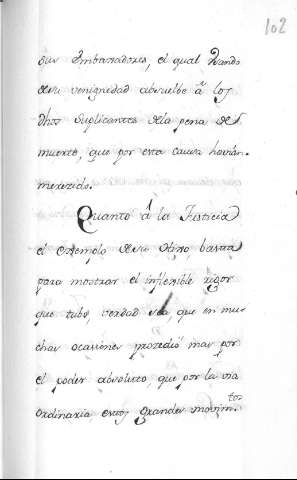 102
sus Embaxadores, el qual Usando
de su venignedad absuelbe â los
dhos Suplicantes de la pena de
muerte, que por esta causa havian
merecido.
Quanto â la Justicia
el exemplo de su Otino, basta
para mostrar el inflexible rigor
que tubo, verdad sea, que en mu-
chas ocasiones prosedió mas por
el poder absoluto, que por la via
ordinaria, estos grandes movim.tos